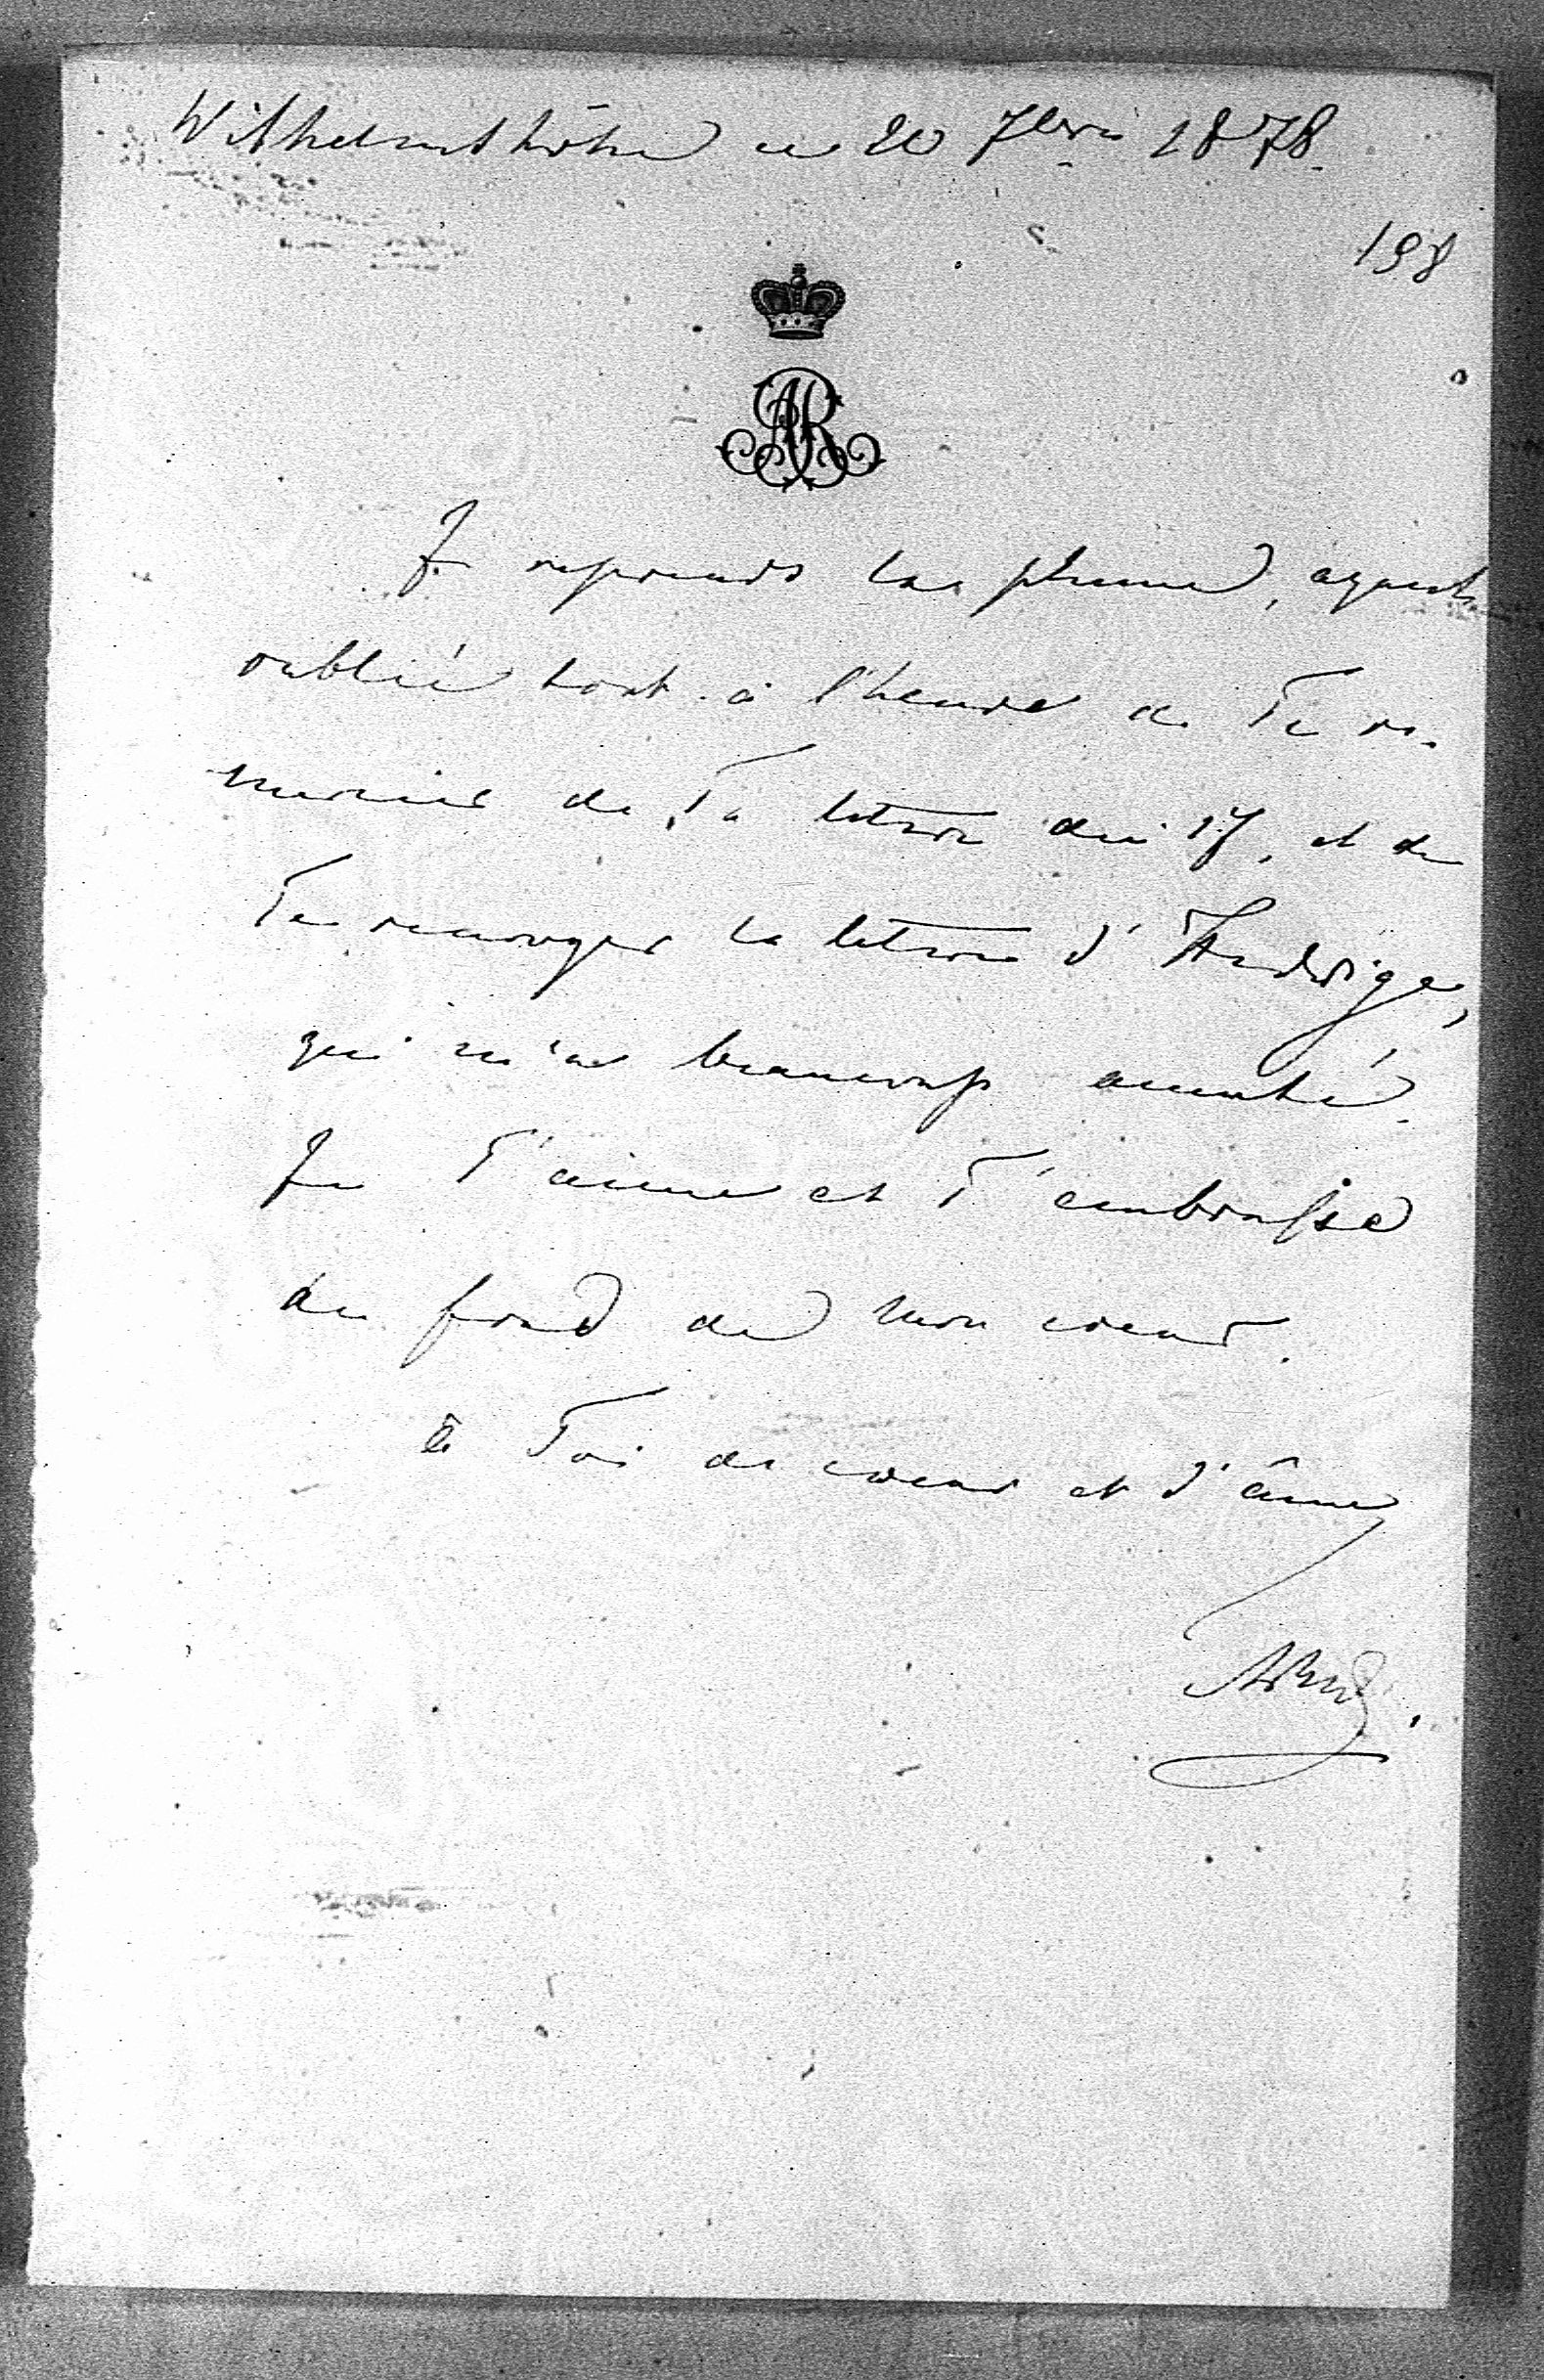 Wilhelmshöhe ce 20 7bre 1878.
198
AR
Je reprends la plume, ayant
oublié tout-à l'heure de Te re-
mercier de Ta lettre du 17, et de
Te renvoyer la lettre d'Hedwige,
qui m'a beaucoup
Je T'aime et T'embrasse
du fond de mon coeur.
à Toi de coeur et d'âme